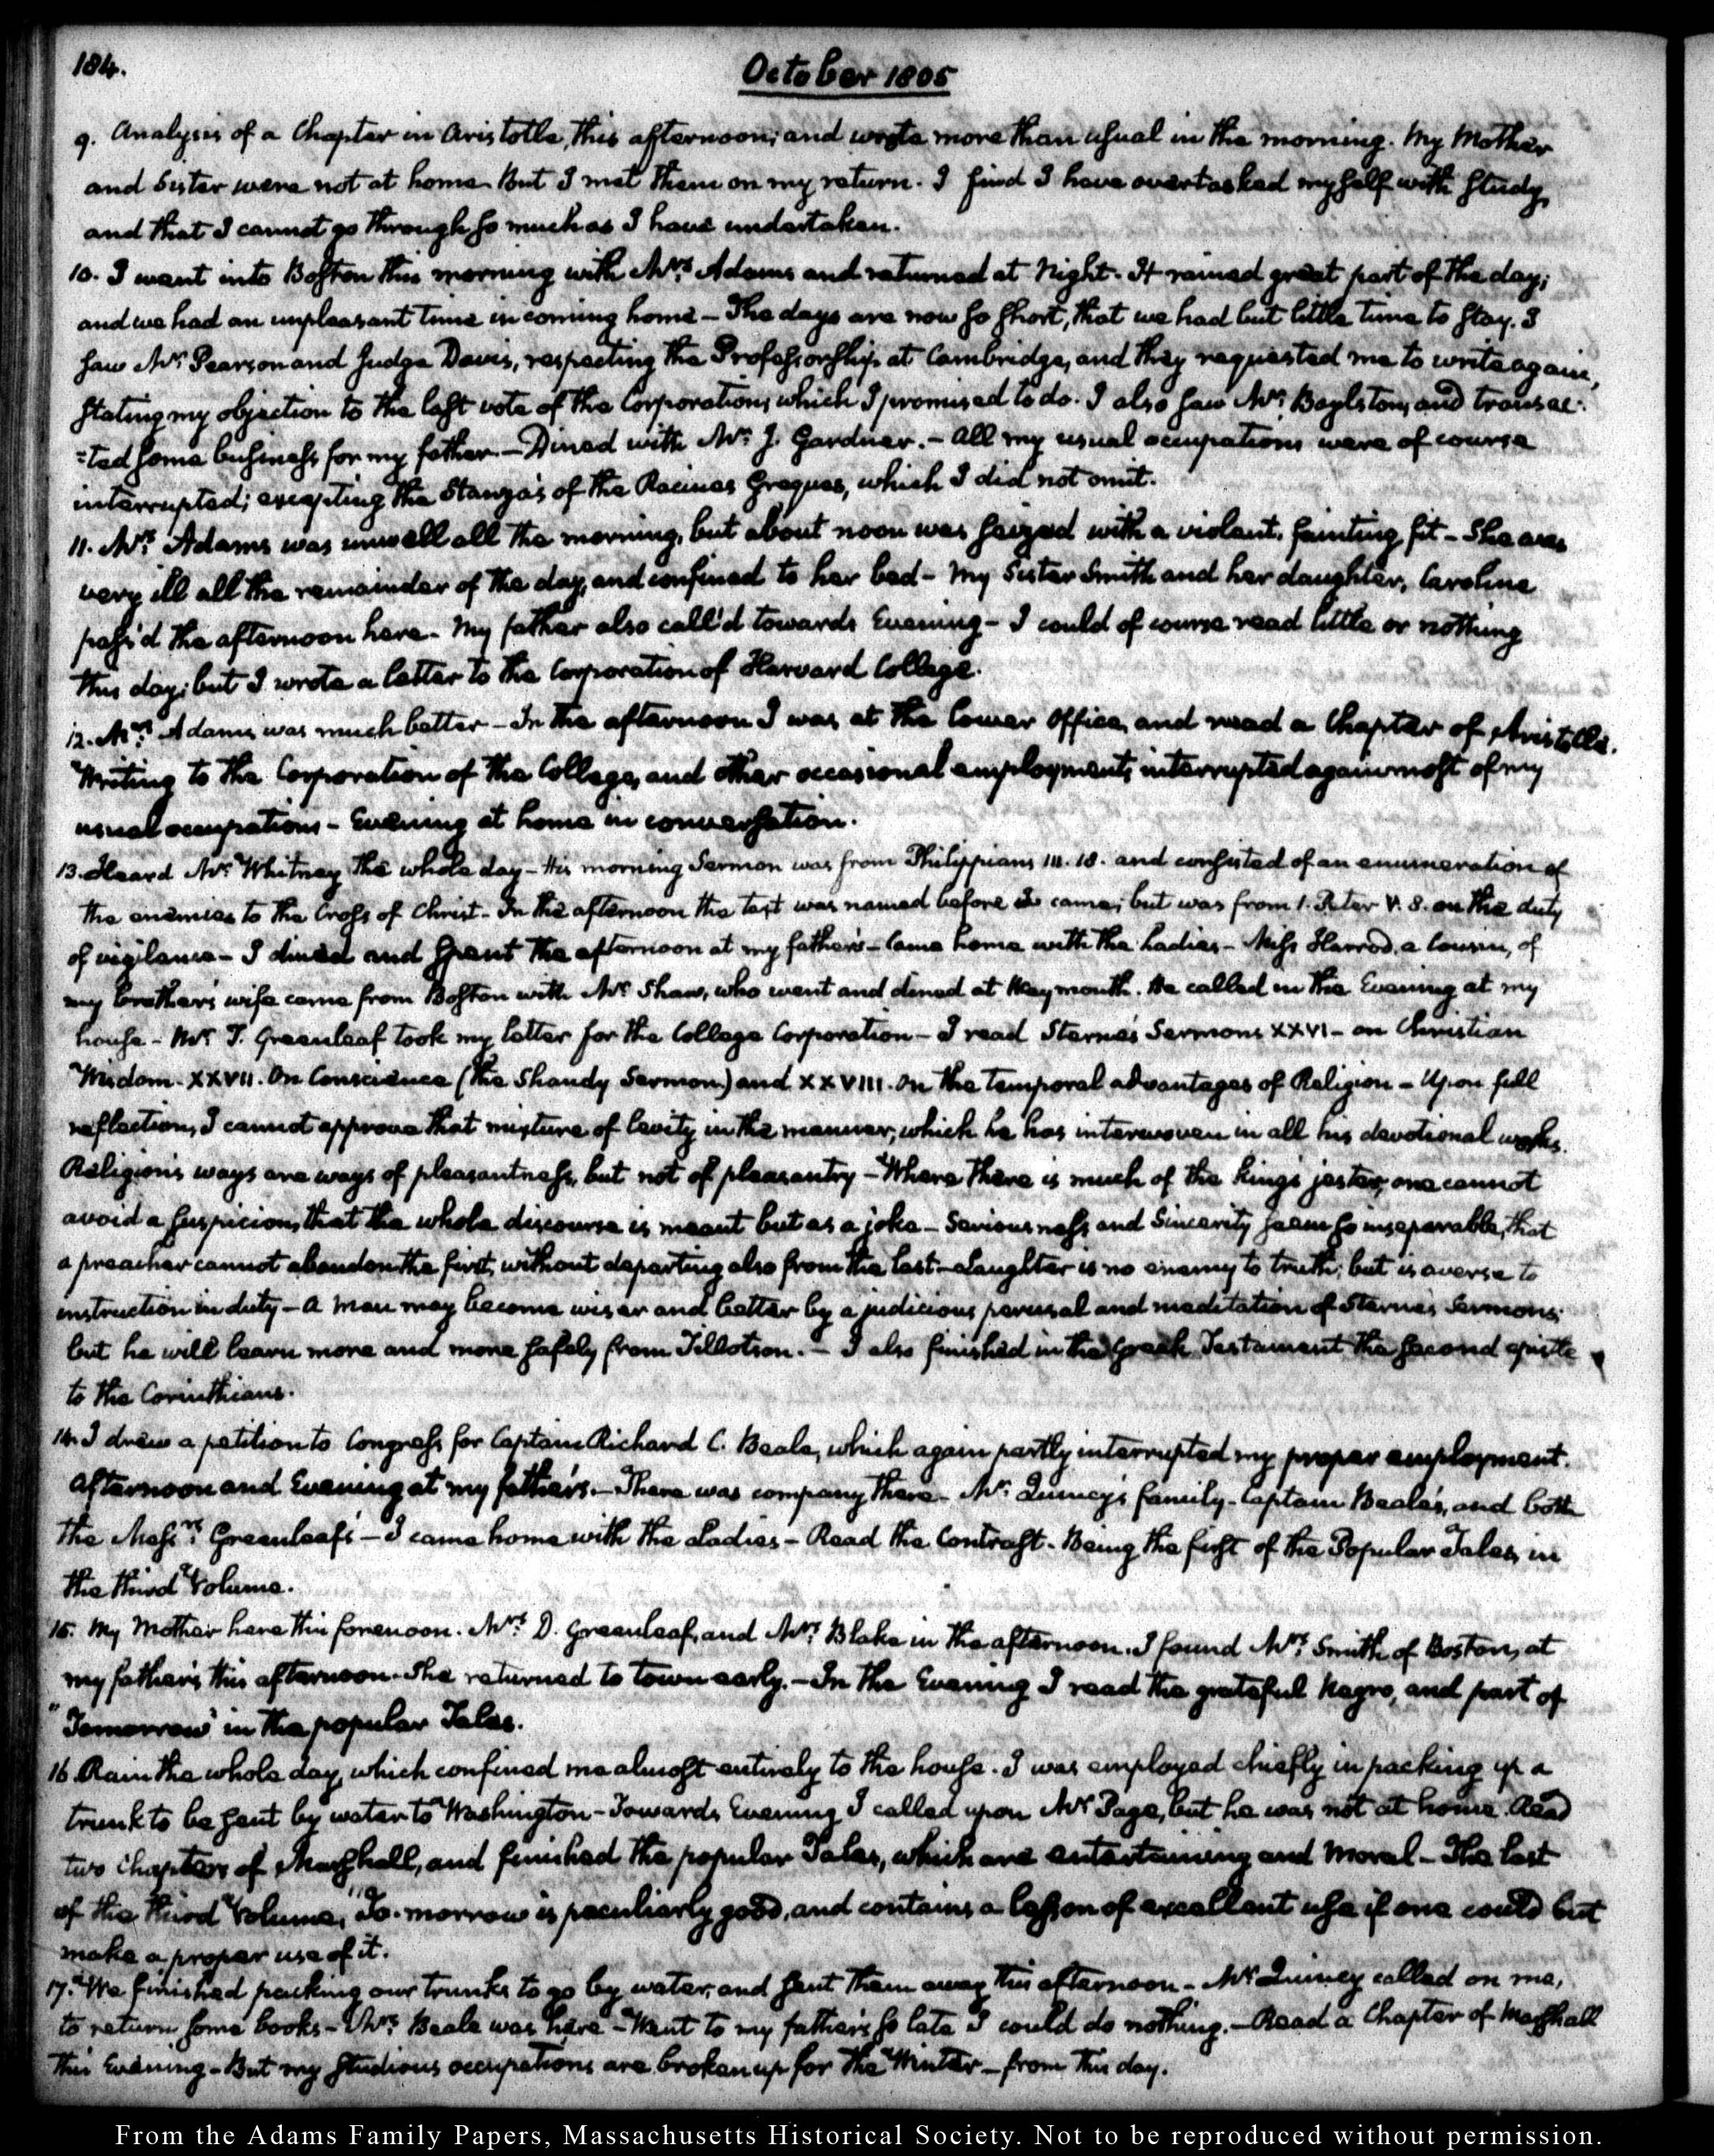 184.
October 1805
9. Analysis of a Chapter in Aristotle, this afternoon; and wrote more than usual in the morning. My Mother
and Sister were not at home. But I met them on my return. I find I have overtasked myself with study,
and that I cannot go through so much as I have undertaken.
10. I went into Boston this morning with Mrs. Adams and returned at Night. It rained great part of the day;
and we had an unpleasant time in coming home — The days are now so short, that we had but little time to stay. I
saw Mr. Pearson and Judge Davis, respecting the Professorship at Cambridge, and they requested me to write again,
stating my objection to the last vote of the Corporation, which I promised to do. I also saw Mr. Boylston, and transac-
=ted some business for my father. — Dined with Mr. J. Gardner. — All my usual occupations were of course
interrupted; excepting the Stanza's of the Racines Greques, which I did not omit.
11. Mrs. Adams was unwell all the morning, but about noon was seized with a violent fainting fit — She was
very ill all the remainder of the day, and confined to her bed — My Sister Smith and her daughter, Caroline
pass'd the afternoon here. My father also call'd towards Evening — I could of course read little or nothing
this day; but I wrote a letter to the Corporation of Harvard College.
12. Mrs. Adams was much better — In the afternoon I was at the lower office, and read a Chapter of Aristotle.
Writing to the Corporation of the College, and other occasional employments, interrupted again most of my
usual occupations — Evening at home in conversation.
13. Heard Mr. Whitney the whole day — His morning Sermon was from Philippians III. 18. and consisted of an enumeration of
the enemies to the Cross of Christ. In the afternoon the text was named before I came; but was from 1. Peter V. 8. on the duty
of vigilance — I dined and spent the afternoon at my father's — Came home with the Ladies — Miss Harrod, a Cousin, of
my brother's wife came from Boston with Mr. Shaw, who went and dined at Weymouth. He called in the Evening at my
house — Mr. T. Greenleaf took my letter for the College Corporation — I read Sterne's Sermons XXVI — on Christian
Wisdom. XXVII. On Conscience (the Shandy Sermon) and XXVIII. On the temporal advantages of Religion — Upon full
reflection, I cannot approve that mixture of levity in the manner, which he has interwoven in all his devotional works.
Religion's ways are ways of pleasantness, but not of pleasantry — Where there is much of the king's jester, one cannot
avoid a suspicion, that the whole discourse is meant but as a joke — Seriousness and Sincerity seem so inseparable, that
a preacher cannot abandon the first, without departing also from the last — Laughter is no enemy to truth; but is averse to
instruction in duty — A Man may become wiser and better by a judicious perusal and meditation of Sterne's Sermons;
but he will learn more and more safely from Tillotson. — I also finished in the Greek Testament the second epistle
to the Corinthians.
14. I drew a petition to Congress for Captain Richard C. Beale, which again partly interrupted my proper employment.
Afternoon and Evening at my father's. — There was company there — Mr. Quincy's family — Captain Beale's, and both
the Messrs. Greenleaf's — I came home with the Ladies — Read the Contrast — Being the first of the Popular Tales, in
the third Volume.
15. My Mother here this forenoon. Mrs. D. Greenleaf, and Mrs. Blake in the afternoon. I found Mrs. Smith of Boston, at
my father's this afternoon. She returned to town early. — In the Evening I read the grateful Negro, and part of
"Tomorrow" in the popular Tales.
16. Rain the whole day, which confined me almost entirely to the house. I was employed chiefly in packing up a
trunk to be sent by water to Washington — Towards Evening I called upon Mr. Page, but he was not at home. Read
two Chapters of Marshall, and finished the popular Tales, which are entertaining and Moral — The last
of the third Volume, "To-morrow is peculiarly good, and contains a lesson of excellent use if one could but
make a proper use of it.
17. We finished packing our trunks to go by water, and sent them away this afternoon — Mr. Quincy called on me,
to return some books — Mrs. Beale was here — Went to my father's so late I could do nothing. — Read a Chapter of Marshall
this Evening — But my studious occupations are broken up for the Winter — from this day.
From the Adams Family Papers, Massachusetts Historical Society. Not to be reproduced without permission.